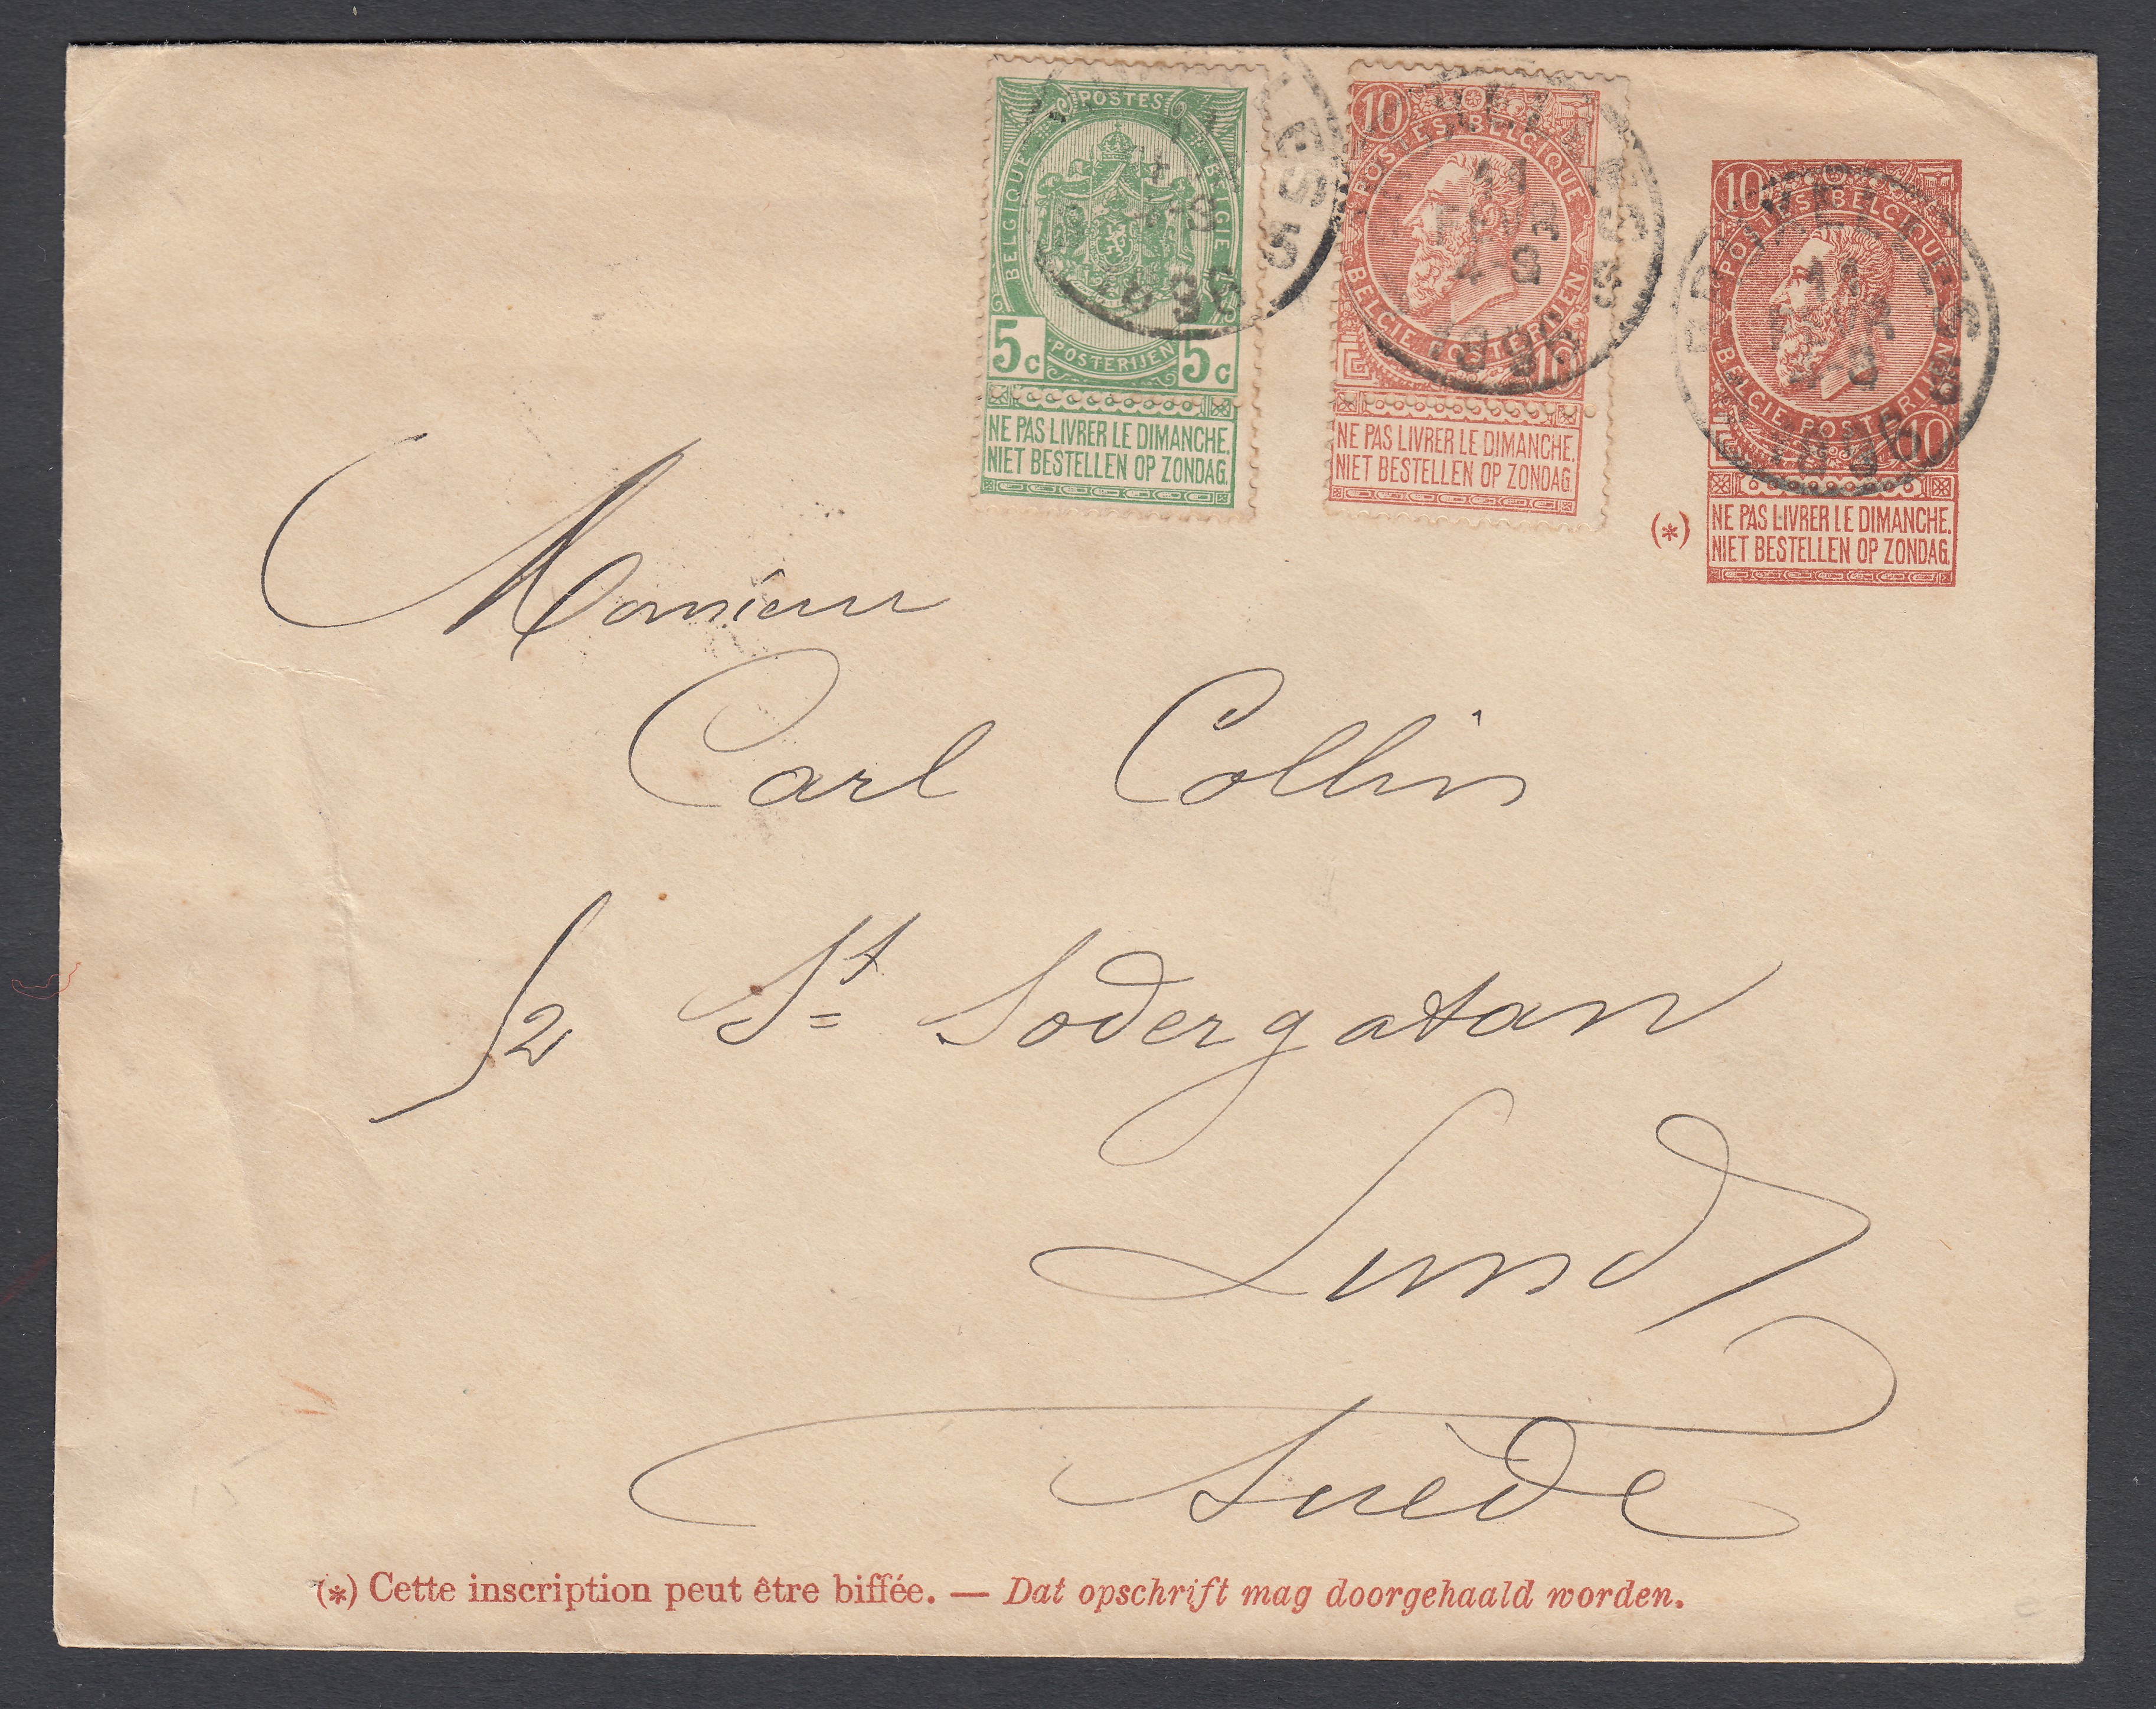 POSTES
BELGIQUE
BELGIE
5c
5c
POSTERIJEN
NE PAS LIVRER LE DIMANCHE.
NIET BESTELLEN OP ZONDAG.
5
1896
10
POSTES BELGIQUE
BELGIE POSTERIJEN
10
NE PAS LIVRER LE DIMANCHE.
NIET BESTELLEN OP ZONDAG.
BRUXELLES 5
11
FEVR
4-8
1896
10
POSTES BELGIQUE
BELGIE POSTERIJEN
10
(*) NE PAS LIVRER LE DIMANCHE.
NIET BESTELLEN OP ZONDAG.
BRUXELLES 5
11
FEVR
4-8
1896
Monsieur
Carl Collin
12 St Sodergatan
Lund
Suède
(*) Cette inscription peut être biffée. — Dat opschrift mag doorgehaald worden.